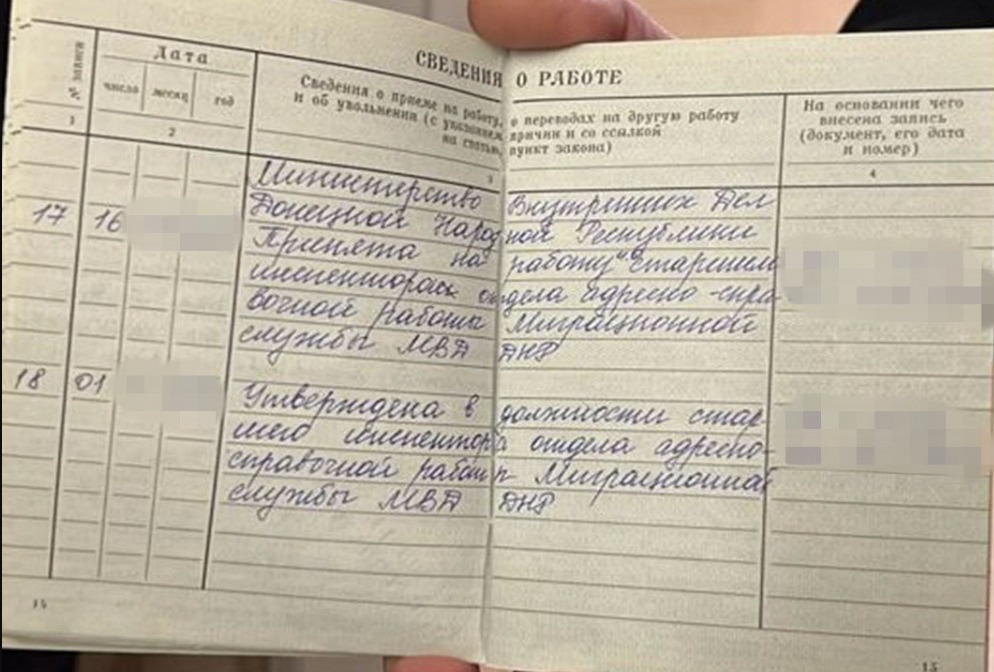 СВЕДЕНИЯ О РАБОТЕ
№ записи
Дата
число месяц год
Сведения о приеме на работу, о переводах на другую работу
и об увольнении (с указанием причин и со ссылкой
на статью, пункт закона)
На основании чего
внесена запись
(документ, его дата
и номер)
1 2 3 4
Министерство Внутренних Дел
Донецкой Народной Республики
17 16 Принята на работу "старшим
инспектором отдела адресно-спра
вочной работы Миграционной
службы МВД ДНР
18 01 Утверждена в должности стар-
шего инспектора отдела адресно-
справочной работы Миграционной
службы МВД ДНР
14 15